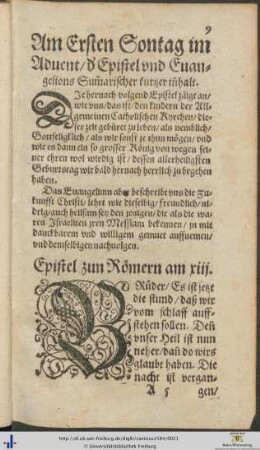 9
Am Ersten Sontag im
Aduent/ d' Epistel vnd Euan-
gelions Sum̃arischer kurtzer inhalt.
Die hernach volgend Epistel zaigt an/
wie vns/ das ist/ den kindern der All-
gemeinen Catholischen Kyrchen/ die-
ser zeit gebüret zu leben/ als nemblich/
Gottseligklich/ als wir sonst ze thun mögen/ vnd
wie es dann ein so grosser König von wegen sei-
ner ehren wol wirdig ist/ dessen allerheiligsten
Geburtstag wir bald hernach herrlich zu begehen
haben.
Das Euangelium aber beschreibt vns die Zu-
kunfft Christi/ lehrt wie dieselbig/ freundlich/ ni-
drig/ auch heilsam sey den jenigen/ die als die wa-
ren Israeliten jren Messiam bekennen/ jn mit
danckbarem vnd willigem gemüet auffnemen/
vnd demselbigen nachuolgen.
Epistel zun Römern am xiij.
BRüder/ Es ist jetzt
die stund/ daß wir
vom schlaff auff-
stehen sollen. Deñ
vnser Heil ist nun
neher/ dañ do wirs
glaubt haben. Die
nacht ist vergan-
A 5 gen/
http://dl.ub.uni-freiburg.de/diglit/canisius1584/0031
© Universitätsbibliothek Freiburg
Baden-Württemberg